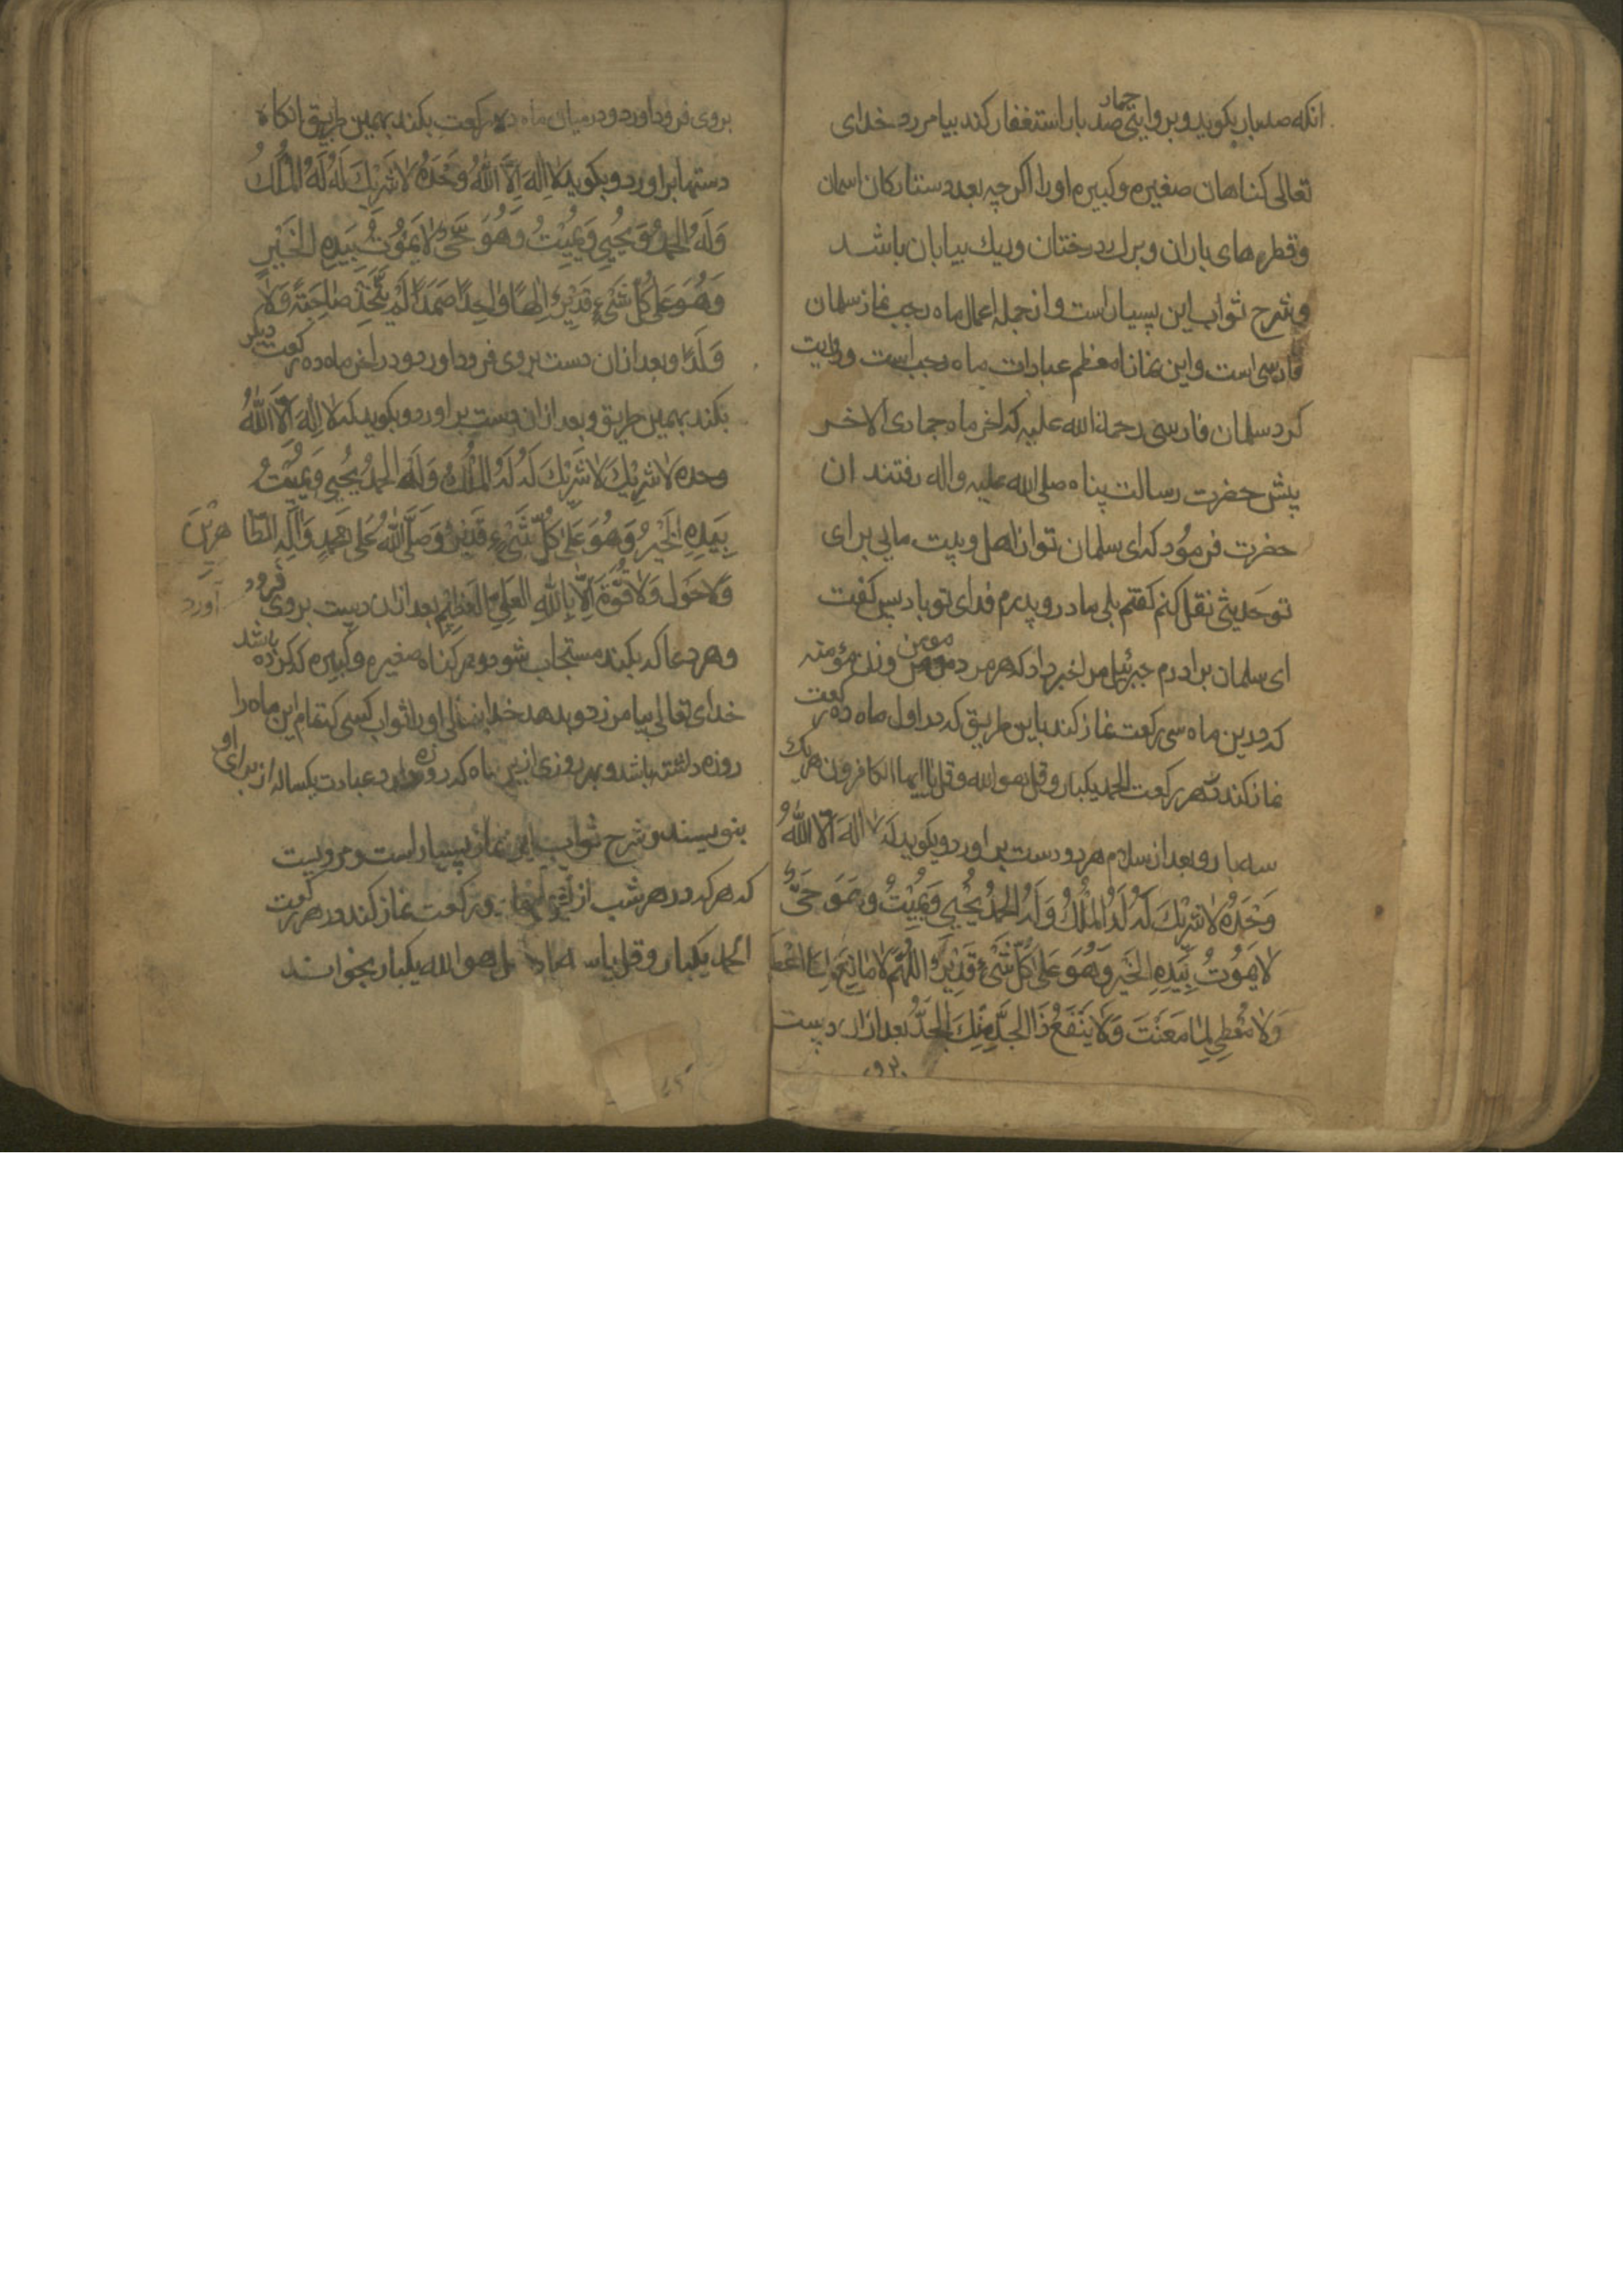 انکه صدبار بکوید و بروایتی چهار صد بار استغفار کند بیامرزد خدای
تعالی کناهان صغیره و کبیره او را اکرچه بعدد ستارکان اسمان
و قطره های باران و برك درختان و ریك بیابان باشد
و شرح ثواب این بسیار است و از جمله اعمال ماه رجب نماز سلمان
فارسی است و این نماز از معظم عبادات ماه رجب است و روایت
کرد سلمان فارسی رحمة الله علیه که اخر ماه جمادی الاخر
پیش حضرت رسالت پناه صلی الله علیه واله رفتند ان
حضرت فرمود که ای سلمان تو از اهل وبیت مایی برای
تو حدیثی نقل کنم کفتم بلی مادر و پدرم فدای تو باد پس کفت
ای سلمان برادرم جبرئیل مرا خبر داد که هر مرد مومن و زن مؤمنه
که درین ماه سی رکعت نماز کند باین طریق که در اول ماه ده رکعت
نماز کند در هر رکعت الحمد یکبار و قل هو الله و قل یا ایها الکافرون هریك
سه بار و بعد از سلام هر دو دست براورد و بکوید که لا اله الّا اللهُ
وَحْدَهُ لاشَرِیْكَ لَهُ لَهُ المُلْكُ وَلَهُ الحَمْدُ یُحْیِی وَیُمِیْتُ وَهُوَ حَیٌّ
لایَمُوْتُ بِیَدِهِ الخَیْر وَهُوَ عَلیٰ کُلِّ شَیْءٍ قَدِیْرٌ اللّٰهُمَّ لا مانِعَ لِمَا اَعْطَ
وَلا مُعْطِی لِمَا مَعَنْتَ وَلا یَنْفَعُ ذَا الجَدِّ مِنْكَ الجَدُّ بعد ازان دست
بروی
بروی فرود اورد و در میان ماه ده رکعت بکند بهمین طریق انکاه
دستها براورد و بکوید لا اِلٰهَ اِلَّا اللهُ وَحْدَهُ لاشَرِیْكَ لَهُ لَهُ المُلْكُ
وَلَهُ الحَمْدُ وَیُحْیِی وَیُمِیْتُ وَهُوَ حَیٌّ لایَمُوْتُ بِیَدِهِ الخَیْرِ
وَهُوَ عَلیٰ کُلِّ شَیْءٍ قَدِیْرٌ اِلٰهًا وٰاحِدًا صَمَدًا لَمْ یَتَّخِذْ صٰاحِبَةً وَلا
وَلَدًا و بعد ازان دست بروی فرود اورد و در اخر ماه ده رکعت دیکر
بکند بهمین طریق و بعد ازان دست براورد و بکوید که لا اِلٰهَ اِلَّا اللهُ
وحده لاشَرِیْكَ لاشَرِیْكَ لَهُ لَهُ المُلْكُ وَلَهُ الحَمْدُ یُحْیِی وَیُمِیْتُ
بِیَدِهِ الخَیْرُ وَهُوَ عَلیٰ کُلِّ شَیْءٍ قَدِیْرٌ وَصَلَّی اللهُ عَلیٰ مُحَمَّدٍ وَاٰلِهِ الطّا هِرِیْنَ
وَلا حَوْلَ وَلا قُوَّةَ اِلّا بِاللهِ العَلِیِّ العَظِیْمِ بعد ازان دست بروی فرود آورد
و هر دعا که بکند مستجاب شود و هر کناه صغیره و کبیره که کرده باشد
خدای تعالی بیامرزد و بدهد خدایتعالی او را ثواب کسی که تمام این ماه را
روزه داشته باشد و بهر روزی ازین ماه که روزه دارد عبادت یکساله از برای او
بنویسند و شرح ثواب این نماز بسیار است و مرویست
که هر که در هر شب از رکعت نماز کند و در هر رکعت
الحمد یکبار و قل یا هو الله یکبار بخواند